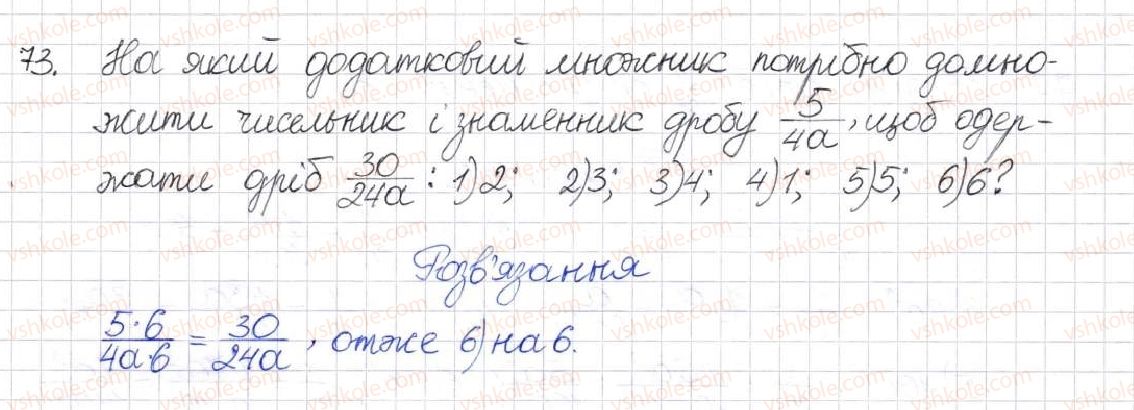 73. На який додатковий множник потрібно домно-
жити чисельник і знаменник дробу 5/4a, щоб одер-
жати дріб 30/24a : 1) 2; 2) 3; 3) 4; 4) 1; 5) 5; 6) 6?
Розв'язання
5·6/4a·6 = 30/24a, отже 6) на 6.